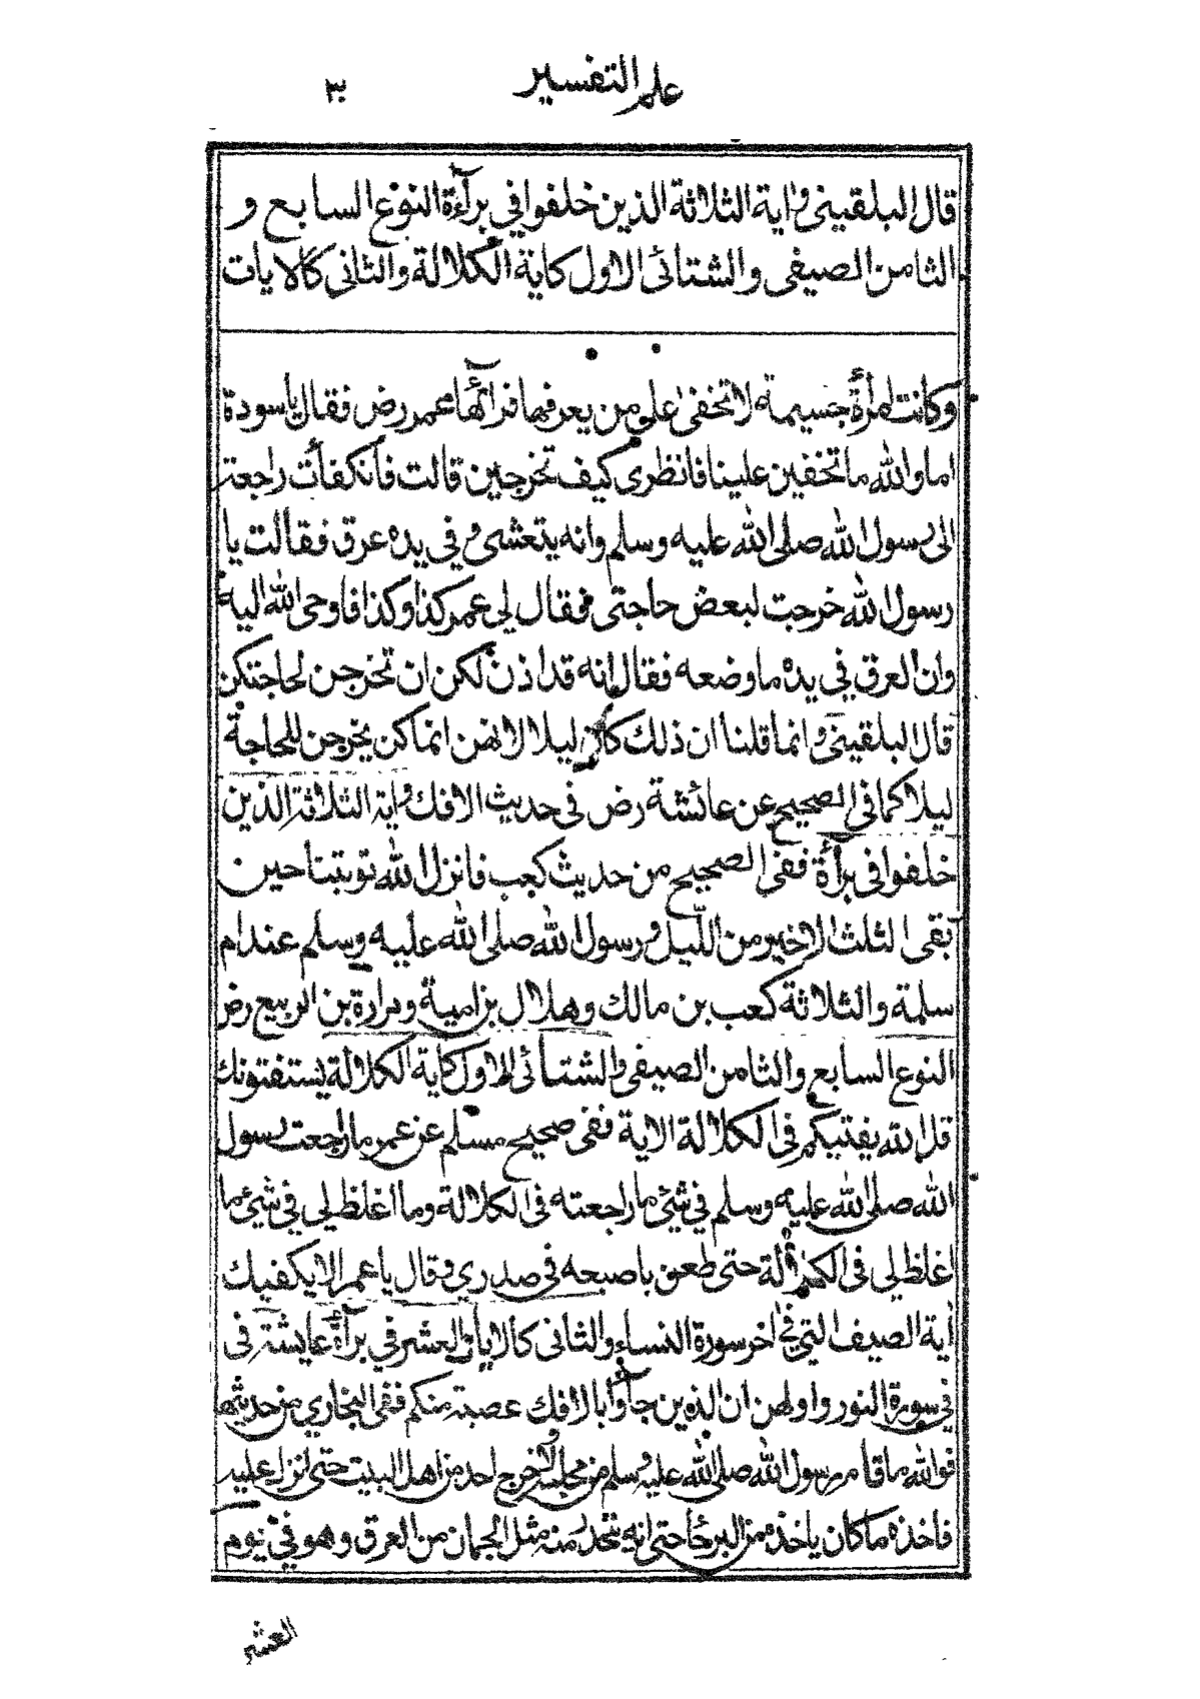 علم التفسير
٣٠
قال البلقينى واية الثلاثة الذين خلفوا في برآءة النوع السابع و
الثامن الصيفى والشتائى الاول كاية الكلالة والثانى كالايات
وكانت امرأة جسيمة لا تخفى على من يعرفها فرآئها عمر رض فقال يا سودة
اما والله ما تخفين علينا فانظرى كيف تخرجين قالت فأنكفأت راجعة
الى رسول الله صلى الله عليه وسلم وانه يتعشى و في يده عرق فقالت يا
رسول الله خرجت لبعض حاجتى فقال لي عمر كذا وكذا فاوحى الله اليه
وان العرق في يده ما وضعه فقال انه قد اذن لكن ان تخرجن لحاجتكن
قال البلقينى و انما قلنا ان ذلك كان ليلا لانهن انما كن يخرجن للحاجة
ليلا كما فى الصحيح عن عائشة رض فى حديث الافك واية الثلاثة الذين
خلفوا فى برآءة ففى الصحيح من حديث كعب فانزل الله توبتنا حين
بقى الثلث الاخير من الليل و رسول الله صلى الله عليه وسلم عند ام
سلمة والثلاثة كعب بن مالك وهلال بن امية ومرارة بن الربيع رض
النوع السابع والثامن الصيفى والشتائى الاول كاية الكلالة يستفتونك
قل الله يفتيكم فى الكلالة الاية ففى صحيح مسلم عن عمر ما راجعت رسول
الله صلى الله عليه وسلم في شئ ما راجعته فى الكلالة وما اغلظ لي في شئ ما
اغلظ لي فى الكلالة حتى طعن باصبعه فى صدري وقال يا عمر الا يكفيك
أية الصيف التي في اخر سورة النساء والثانى كالايات العشر في برآءة عايشة فى
في سورة النور واولهن ان الذين جآؤا بالافك عصبة منكم ففى البخاري من حديثها
فوالله ما قام رسول الله صلى الله عليه وسلم من مجلسه ولا خرج احد من اهل البيت حتى انزل عليه
فاخذه ما كان ياخذه من البرحا حتى انه ليتحدر منه مثل الجمان من العرق وهو في يوم
العشر